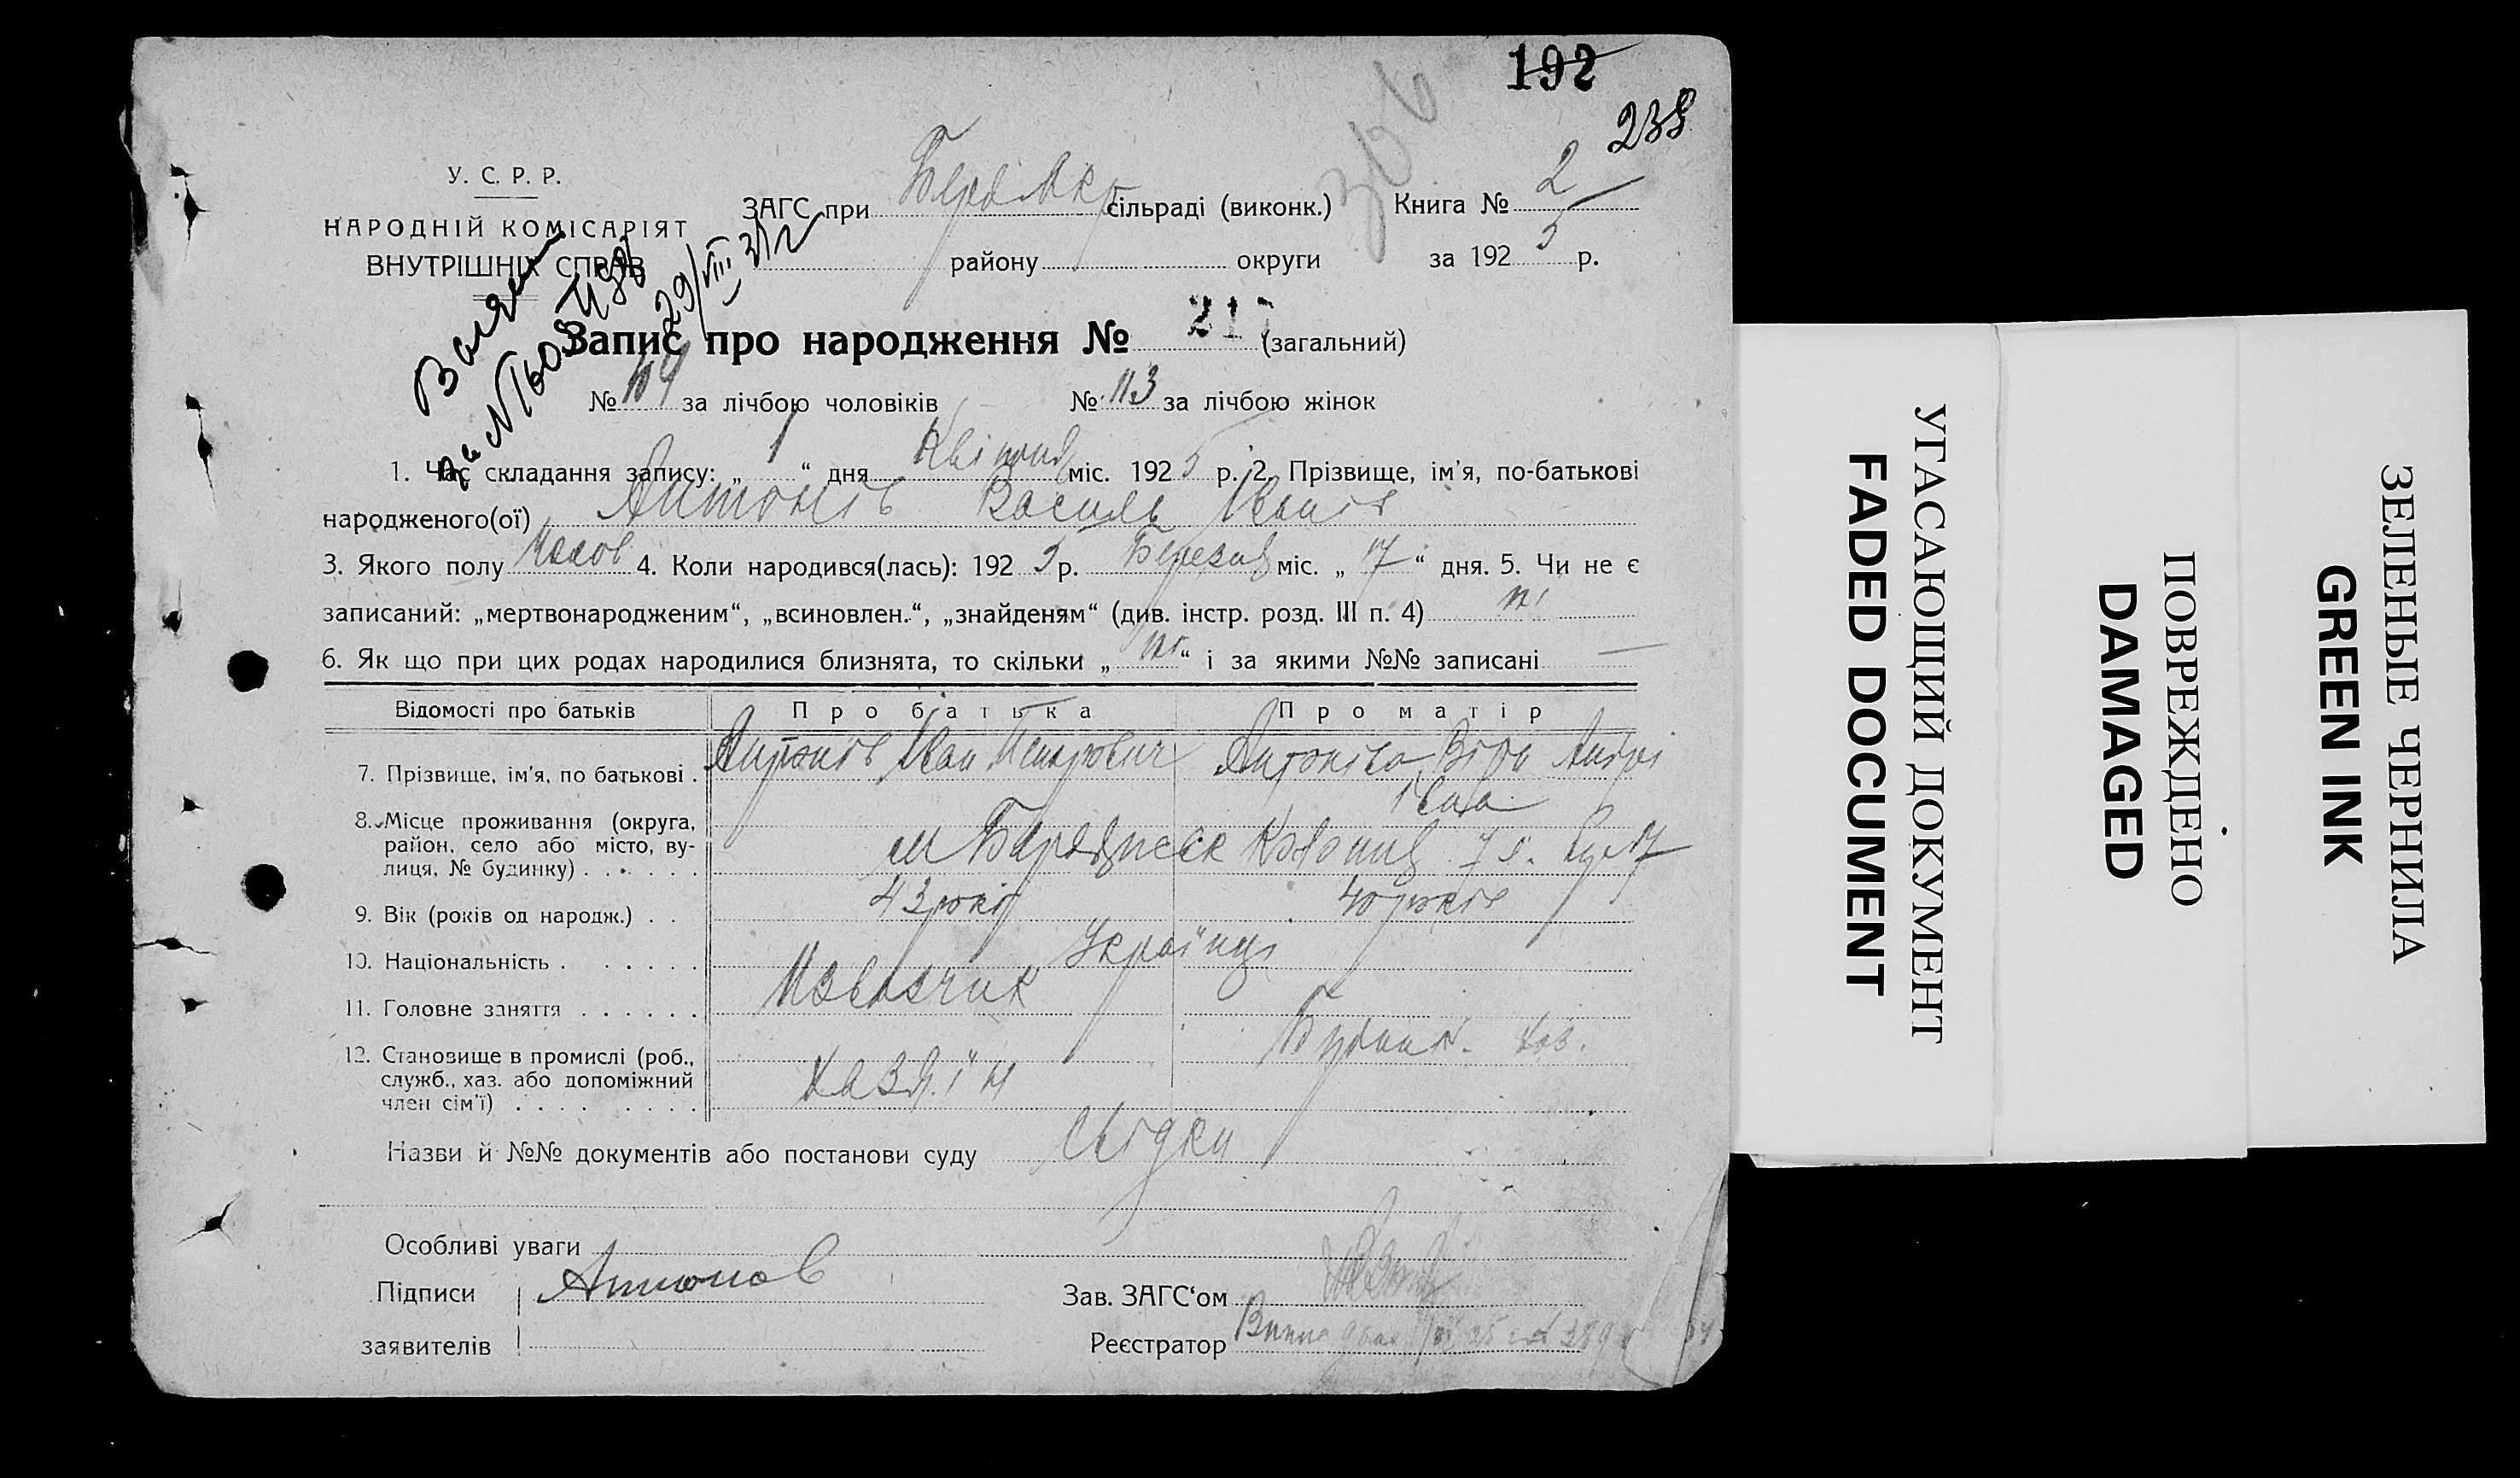 192
238
306
У. С. Р. Р.
НАРОДНІЙ КОМІСАРІЯТ
ВНУТРІШНІХ СПРАВ
ЗАГС при сільраді (виконк.) Книга № 2
району округи за 1925 р.
29/VIII 31 г
Запис про народження № (загальний)
№ 104 за лічбою чоловіків № 113 за лічбою жінок
1. Час складання запису: „ 1 “ дня Квітня міс. 1925 р. 2. Прізвище, ім’я, по-батькові
народженого(ої) Антонів Василь Іванів
3. Якого полу Чолов 4. Коли народився(лась): 1925 р. Березня міс. „ 17 “ дня. 5. Чи не є
записаний: „мертвонародженим“, „всиновлен.“, „знайденям“ (див. інстр. розд. III п. 4) ні
6. Як що при цих родах народилися близнята, то скільки „ ні “ і за якими №№ записані —
Відомості про батьків Про батька Про матір
7. Прізвище, ім’я, по батькові . Антонів Іван Петрович Антоніва Віра Андрі
івна
8. Місце проживання (округа,
район, село або місто, ву-
лиця, № будинку) . . . . . . м Бердянськ Колонія
9. Вік (років од народж.) . . 43 років 40 років
10. Національність . . . . . . Українці
11. Головне заняття . . . . . . Извозчик
12. Становище в промислі (роб.,
служб., хаз. або допоміжний
член сім’ї) . . . . . . . . Хазяїн
Назви й №№ документів або постанови суду свідки
Особливі уваги
Підписи Антонов Зав. ЗАГС‘ом
заявителів Реєстратор
УГАСАЮЩИЙ ДОКУМЕНТ
FADED DOCUMENT
ПОВРЕЖДЕНО
DAMAGED
ЗЕЛЕНЫЕ ЧЕРНИЛА
GREEN INK